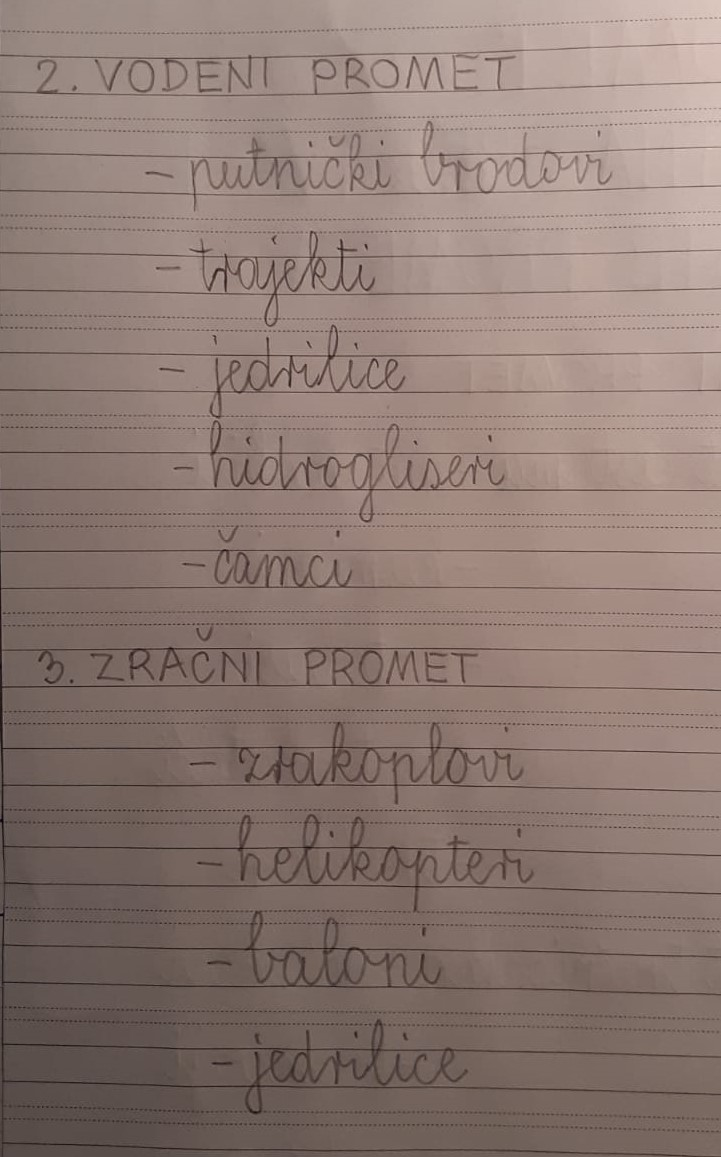 2. VODENI PROMET
- putnički brodovi
- trajekti
- jedrilice
- hidrogliseri
- čamci
3. ZRAČNI PROMET
- zrakoplovi
- helikopteri
- baloni
- jedrilice